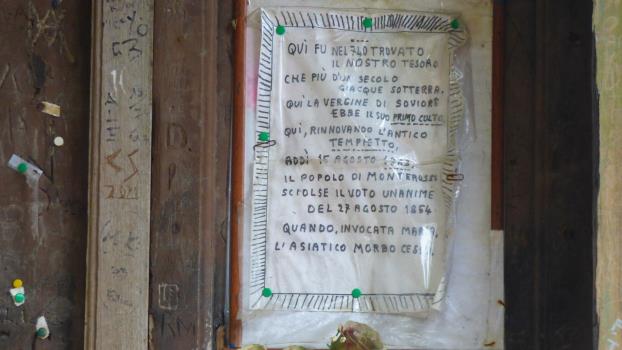 QUÌ FU NEL 740 TROVATO
IL NOSTRO TESORO
CHE PIÙ D'UN SECOLO
GIACQUE SOTTERRA.
QUÌ LA VERGINE DI SOVIORE
EBBE IL SUO PRIMO CULTO.
QUÌ, RINNOVANDO L'ANTICO
TEMPIETTO,
ADDÌ 15 AGOSTO
IL POPOLO DI MONTEROSSO
SCIOLSE IL VOTO UNANIME
DEL 27 AGOSTO 1854
QUANDO, INVOCATA MARIA,
L'ASIATICO MORBO